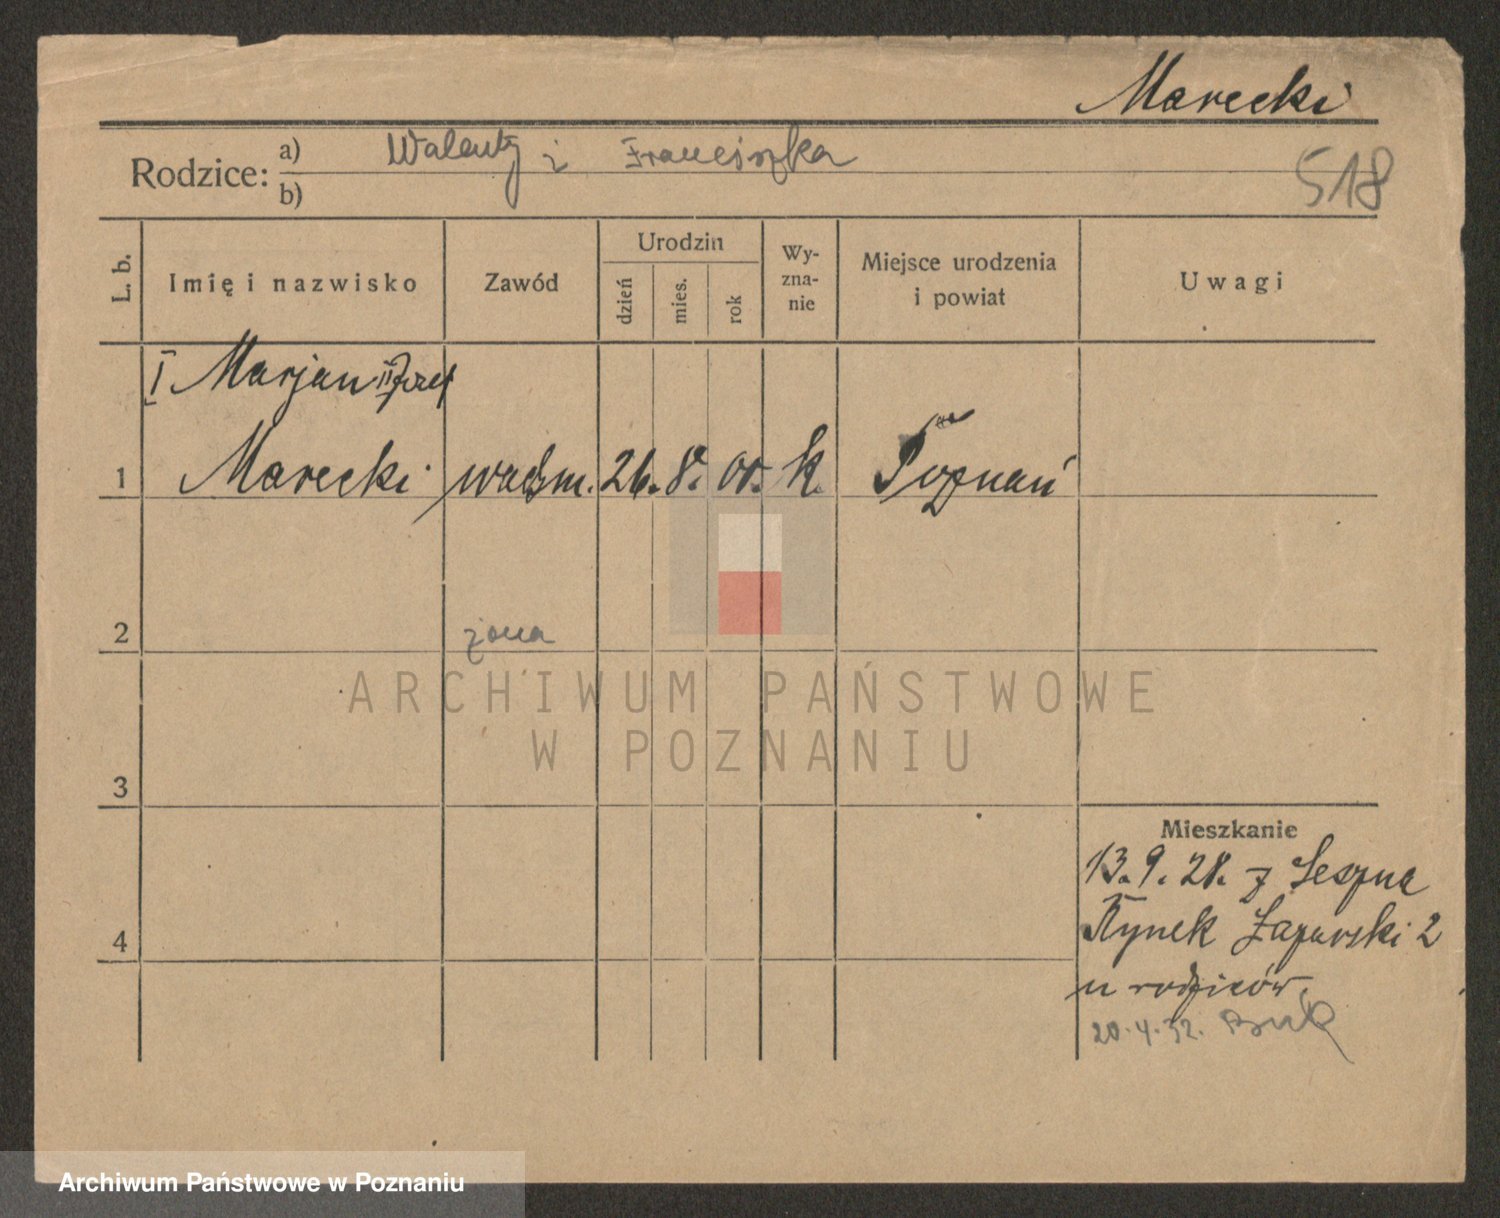 Marecki
Rodzice: a) Walenty i Franciszka
b)
518
L. b.
Imię i nazwisko
Zawód
Urodzin
dzień
mies.
rok
Wy-
zna-
nie
Miejsce urodzenia
i powiat
Uwagi
I Marjan II Józef
1 Marecki wachm. 26. 8. 00. k. Poznań
2 żona
3
4
Mieszkanie
13.9.28. z Leszna
Rynek Łazarski 2
u rodziców.
20.4.32. Buk
ARCHIWUM PAŃSTWOWE
W POZNANIU
Archiwum Państwowe w Poznaniu